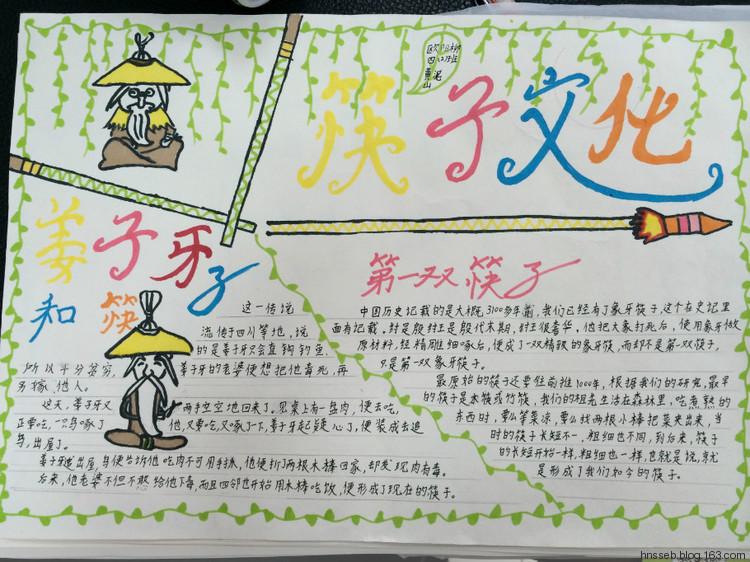 筷子文化
四(2)班
姜子牙
和筷子
这一传说
流传于四川等地,说
的是姜子牙只会直钩钓鱼,
所以十分贫穷,姜子牙的老婆便想把他毒死,再
另嫁他人。
这天,姜子牙又两手空空地回来了。见桌上有一盘肉,便去吃,
正要吃,一只鸟啄了他,又要吃,又啄了一下,姜子牙起疑心了,便装成去追
鸟,出屋了。
姜子牙追出屋,鸟便告诉他吃肉不可用手抓,他便折了两根木棒回家,却发现肉有毒。
后来,他老婆不但不敢给他下毒,而且四邻也开始用木棒吃饭,便形成了现在的筷子。
第一双筷子
中国历史记载的是大概3100多年前,我们已经有了象牙筷子,这个在史记里
面有记载。纣是殷纣王是殷代末期,纣王很奢华,他把大象打死后,使用象牙做
原材料,经精雕细啄后,便成了一双精致的象牙筷,而却不是第一双筷子,
只是第一双象牙筷子。
最原始的筷子还要往前推1000年,根据我们的研究,最早
的筷子是木筷或竹筷,我们的祖老生活在森林里,吃煮熟的
东西时,要么等菜凉,要么找两根小棒把菜夹出来,当
时的筷子长短不一,粗细也不同,到后来,筷子
的长短开始一样,粗细也一样,也就是说,就
是形成了我们如今的筷子。
hnsseb.blog.163.com